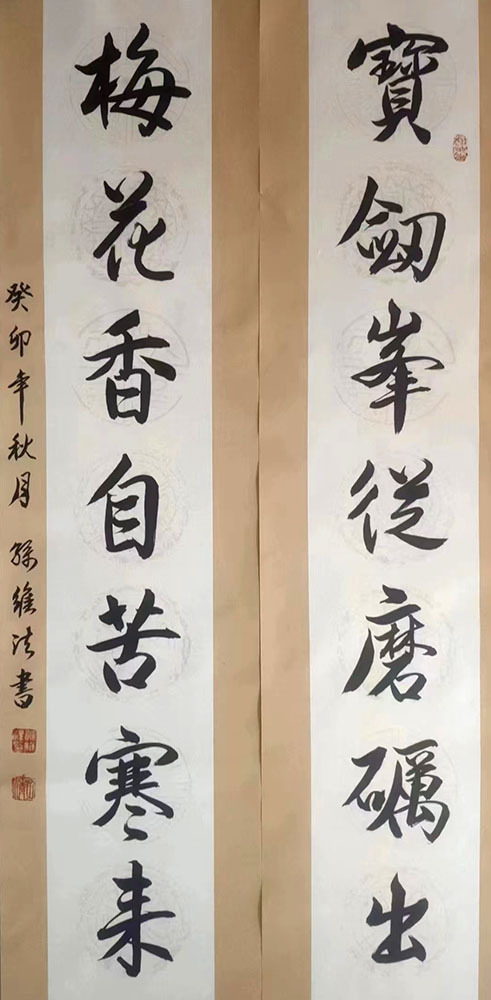 寶劔峯從磨礪出
梅花香自苦寒来
癸卯年秋月 孫維法書